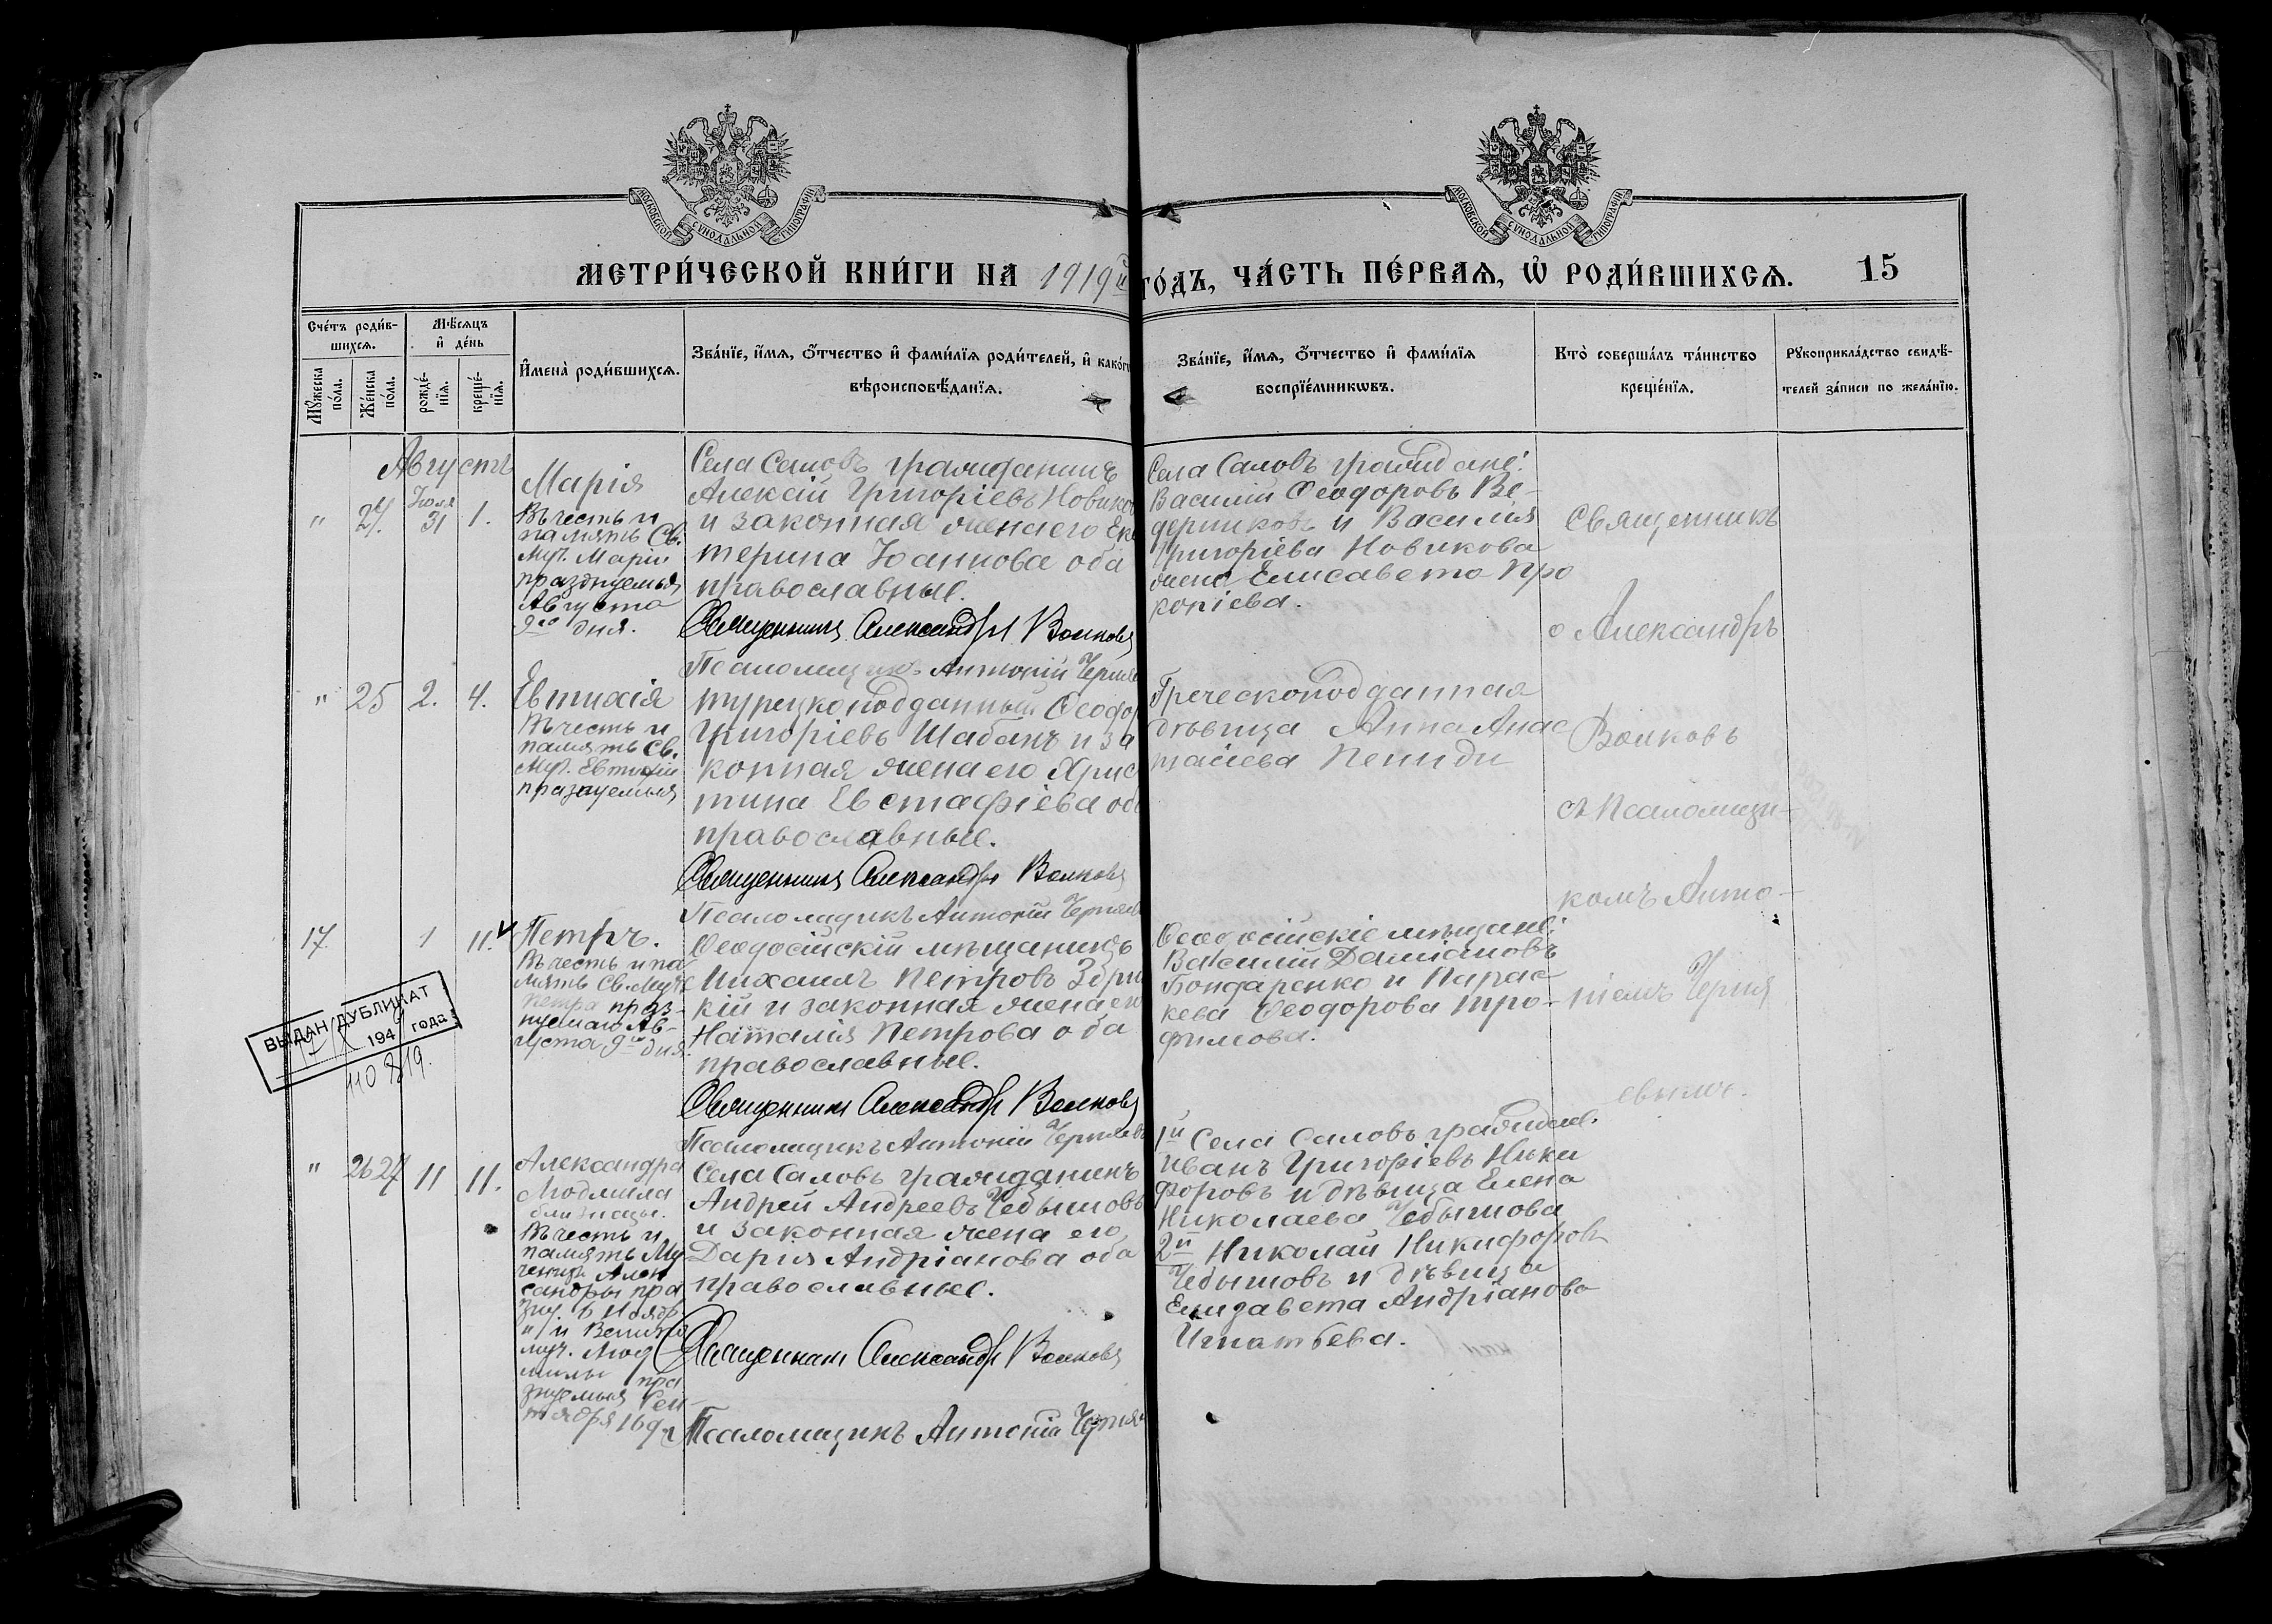 МОСКОВСКОЙ СУНОДАЛЬНОЙ ТИПОГРАФИИ
МОСКОВСКОЙ СУНОДАЛЬНОЙ ТИПОГРАФИИ
МЕТРИ́ЧЕСКОЙ КНИ́ГИ НА 1919й
ГО́ДЪ, ЧА́СТЬ ПЕ́РВАѦ, Ѿ РОДИ́ВШИХСѦ.
15
Сче́тъ роди́в-
шихсѧ.
Мꙋ́жеска
по́ла.
Же́нска
по́ла.
Мѣ́сѧцъ
и҆ де́нь
рожде́-
нїѧ.
креще́-
нїѧ.
И҆мена̀ роди́вшихсѧ.
Зва́нїе, и҆́мѧ, ѻ҆́тчество и҆ фами́лїѧ роди́телей, и҆ како́гѡ
вѣроисповѣ́данїѧ.
Зва́нїе, и҆́мѧ, ѻ҆́тчество и҆ фами́лїѧ
воспрїе́мникѡвъ.
Кто̀ соверша́лъ та́инство
креще́нїѧ.
Рꙋкоприкла́дство свидѣ́-
телей за́писи по жела́нїю.
Августъ
" 24. Июля 31 1.
Марія
Въ честь и
память Св.
Муч. Маріи
празднуемыя
Августа
9го дня.
Села Саловъ гражданинъ
Алексій Григоріевъ Новиков
и законная жена его Ека
терина Іоаннова оба
православные.
Священникъ Александръ Волковъ
Псаломщикъ Антоній Черняев
Села Саловъ граждане:
Василій Ѳеодоровъ Ве-
дерниковъ и Василия
Григоріева Новикова
жена Елисавета Про
копіева.
" 25 2. 4.
Евтихія
Въ честь и
память Св.
Муч. Евтихіи
празднуемыя
турецкоподданный Ѳеодор
Григоріевъ Шабанъ и за
конная жена его Хрис
тина Евстафіева оба
православные.
Священникъ Александръ Волковъ
Псаломщикъ Антоній Черняев
Греческоподданная
дѣвица Анна Анас
тасіева Пениди
17. 1 11. v
Петръ.
Въ честь и па
мять Св. Муч
Петра праз-
нуемаго Ав-
густа 9го дня.
Ѳеодосійскій мѣщанинъ
Михаилъ Петровъ Зориц
кій и законная жена его
Наталія Петрова оба
православные.
Священникъ Александръ Волковъ
Псаломщикъ Антоній Черняевъ
Ѳеодосійскіе мѣщане:
Василій Даміановъ
Бондаренко и Парас
кева Ѳеодорова Тро-
фимова.
ВЫДАН ДУБЛИКАТ
194 года
110 819.
" 26 27 11 11.
Александра
Людмила
близнецы.
Въ честь и
память Му
ченицъ Алек
сандры пра
зну. 6 Ноябр
" и Велико
муч. Люд
милы пра
знуемыя Сен-
тября 16 дня
Села Саловъ гражданинъ
Андрей Андреевъ Чебышовъ
и законная жена его
Дарія Андріанова оба
православные.
Священникъ Александръ Волковъ
Псаломщикъ Антоній Черняе
1й Села Саловъ граждане.
Иванъ Григоріевъ Ники
форовъ и дѣвица Елена
Николаева Чебышова
2й Николай Никифоров
Чебышовъ и дѣвица
Елизавета Андріанова
Игнатьева.
Священникъ
о Александръ
Волковъ
съ Псаломщи-
комъ Анто-
ніемъ Черня
евымъ.